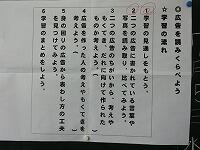 ◎広告を読みくらべよう
☆学習の流れ
1学習の見通しをもとう。
2二つの広告に書かれている言葉や
写真を読み取り、比べてみよう。
3二つの広告のちがいから、考えや
もくてき、だれに向けて作られた
ものか考えよう。
4広告を作った人の考えやもくてきを
考えよう。
5身の回りの広告から表わし方の工夫
を見つけてみよう。
6学習のまとめをしよう。